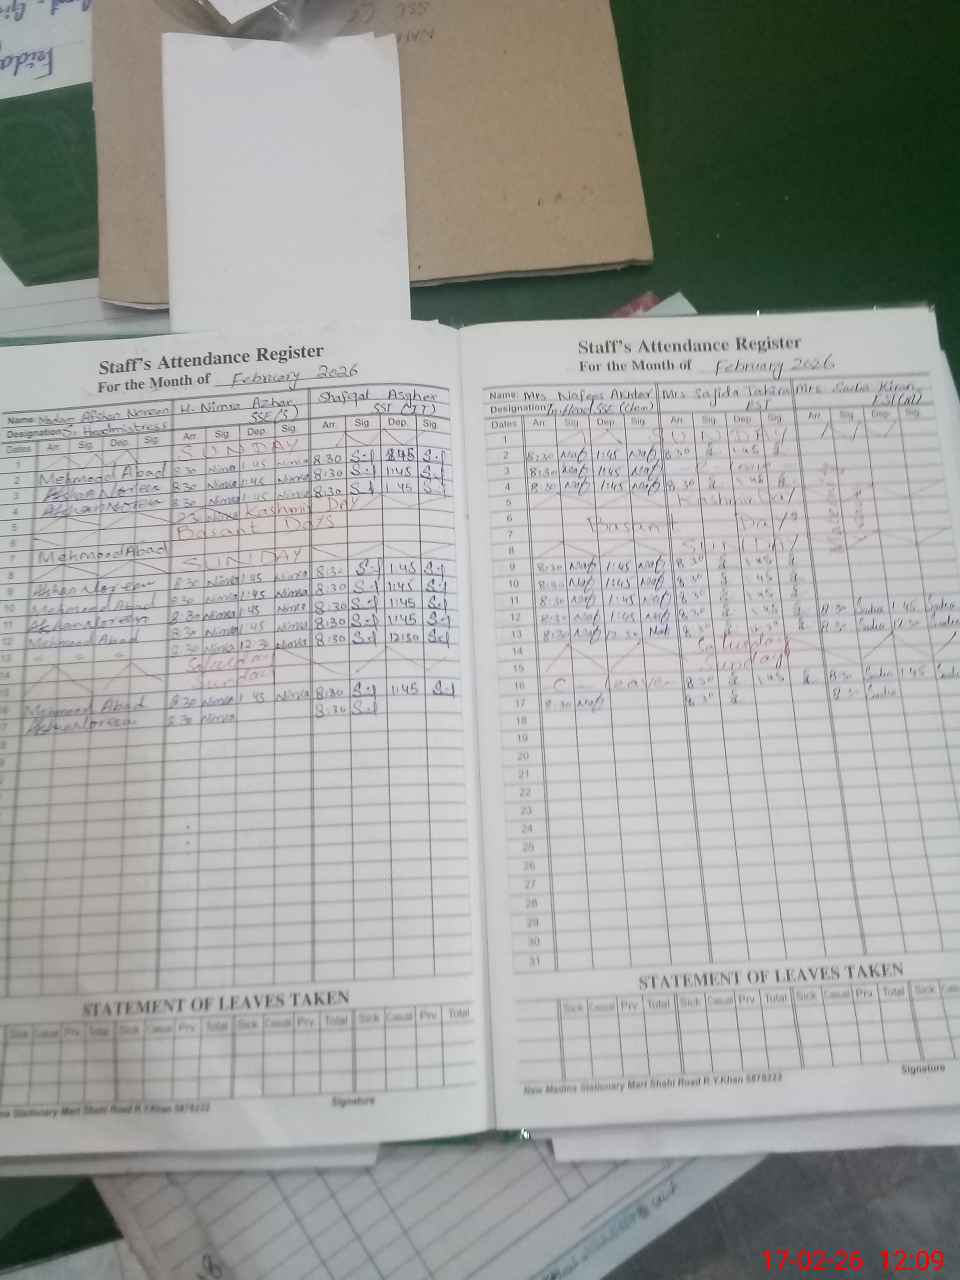 Staff's Attendance Register
For the Month of February 2026
Name: Nadar Afshan Noreen H. Nimra Azhar Shafqat Asgher
Designation Sr. Headmistress SSE(S) SST (IT)
Arr. Sig. Dep. Sig. Arr. Sig. Dep. Sig. Arr. Sig. Dep. Sig.
1 SUNDAY
2 Mehmood Abad 8:30 Nimra 1:45 Nimra 8:30 S-f 1:45 S-f
3 Afshan Noreen 8:30 Nimra 1:45 Nimra 8:30 S-f 1:45 S-f
4 Afshan Noreen 8:30 Nimra 1:45 Nimra 8:30 S-f 1:45 S-f
5 Kashmir Day
6 Basant Days
7 Mehmood Abad
8 SUNDAY
9 Afshan Noreen 8:30 Nimra 1:45 Nimra 8:30 S-f 1:45 S-f
10 Mehmood Abad 8:30 Nimra 1:45 Nimra 8:30 S-f 1:45 S-f
11 Afshan Noreen 8:30 Nimra 1:45 Nimra 8:30 S-f 1:45 S-f
12 Mehmood Abad 8:30 Nimra 1:45 Nimra 8:30 S-f 1:45 S-f
13 8:30 Nimra 12:30 Nimra 8:30 S-f 12:30 S-f
14 Saturday
15 Sunday
16 Mehmood Abad 8:30 Nimra 1:45 Nimra 8:30 S-f 1:45 S-f
17 Afshan Noreen 8:30 Nimra 8:30 S-f
STATEMENT OF LEAVES TAKEN
Sick Casual Prv. Total Sick Casual Prv. Total Sick Casual Prv. Total Sick Casual Prv. Total
Stationary Mart Shahi Road R.Y.Khan 5878222
Signature
Staff's Attendance Register
For the Month of February 2026
Name: Mrs Nafees Akhter Mrs Sajida Tahira Mrs Sadia Kiran
Designation In Head SSE (chem) EST EST(M)
Dates Arr. Sig. Dep. Sig. Arr. Sig. Dep. Sig. Arr. Sig. Dep. Sig.
1 SUNDAY
2 8:30 Naf 1:45 Naf 8:30 1:45
3 8:30 Naf 1:45 Naf C-leave
4 8:30 Naf 1:45 Naf 8:30 1:45
5 Kashmir Day
6 Basant Days
7
8 SUNDAY
9 8:30 Naf 1:45 Naf 8:30 1:45
10 8:30 Naf 1:45 Naf 8:30 1:45
11 8:30 Naf 1:45 Naf 8:30 1:45
12 8:30 Naf 1:45 Naf 8:30 1:45 8:30 Sadia 1:45 Sadia
13 8:30 Naf 12:30 Naf 8:30 12:30 8:30 Sadia 12:30 Sadia
14 Saturday
15 Sunday
16 C-leave 8:30 1:45 8:30 Sadia 1:45 Sadia
17 8:30 Naf 8:30 8:30 Sadia
18
19
20
21
22
23
24
25
26
27
28
29
30
31
STATEMENT OF LEAVES TAKEN
Sick Casual Prv. Total Sick Casual Prv. Total Sick Casual Prv. Total Sick
New Madina Stationary Mart Shahi Road R.Y.Khan 5878222
Signature
17-02-26 12:09